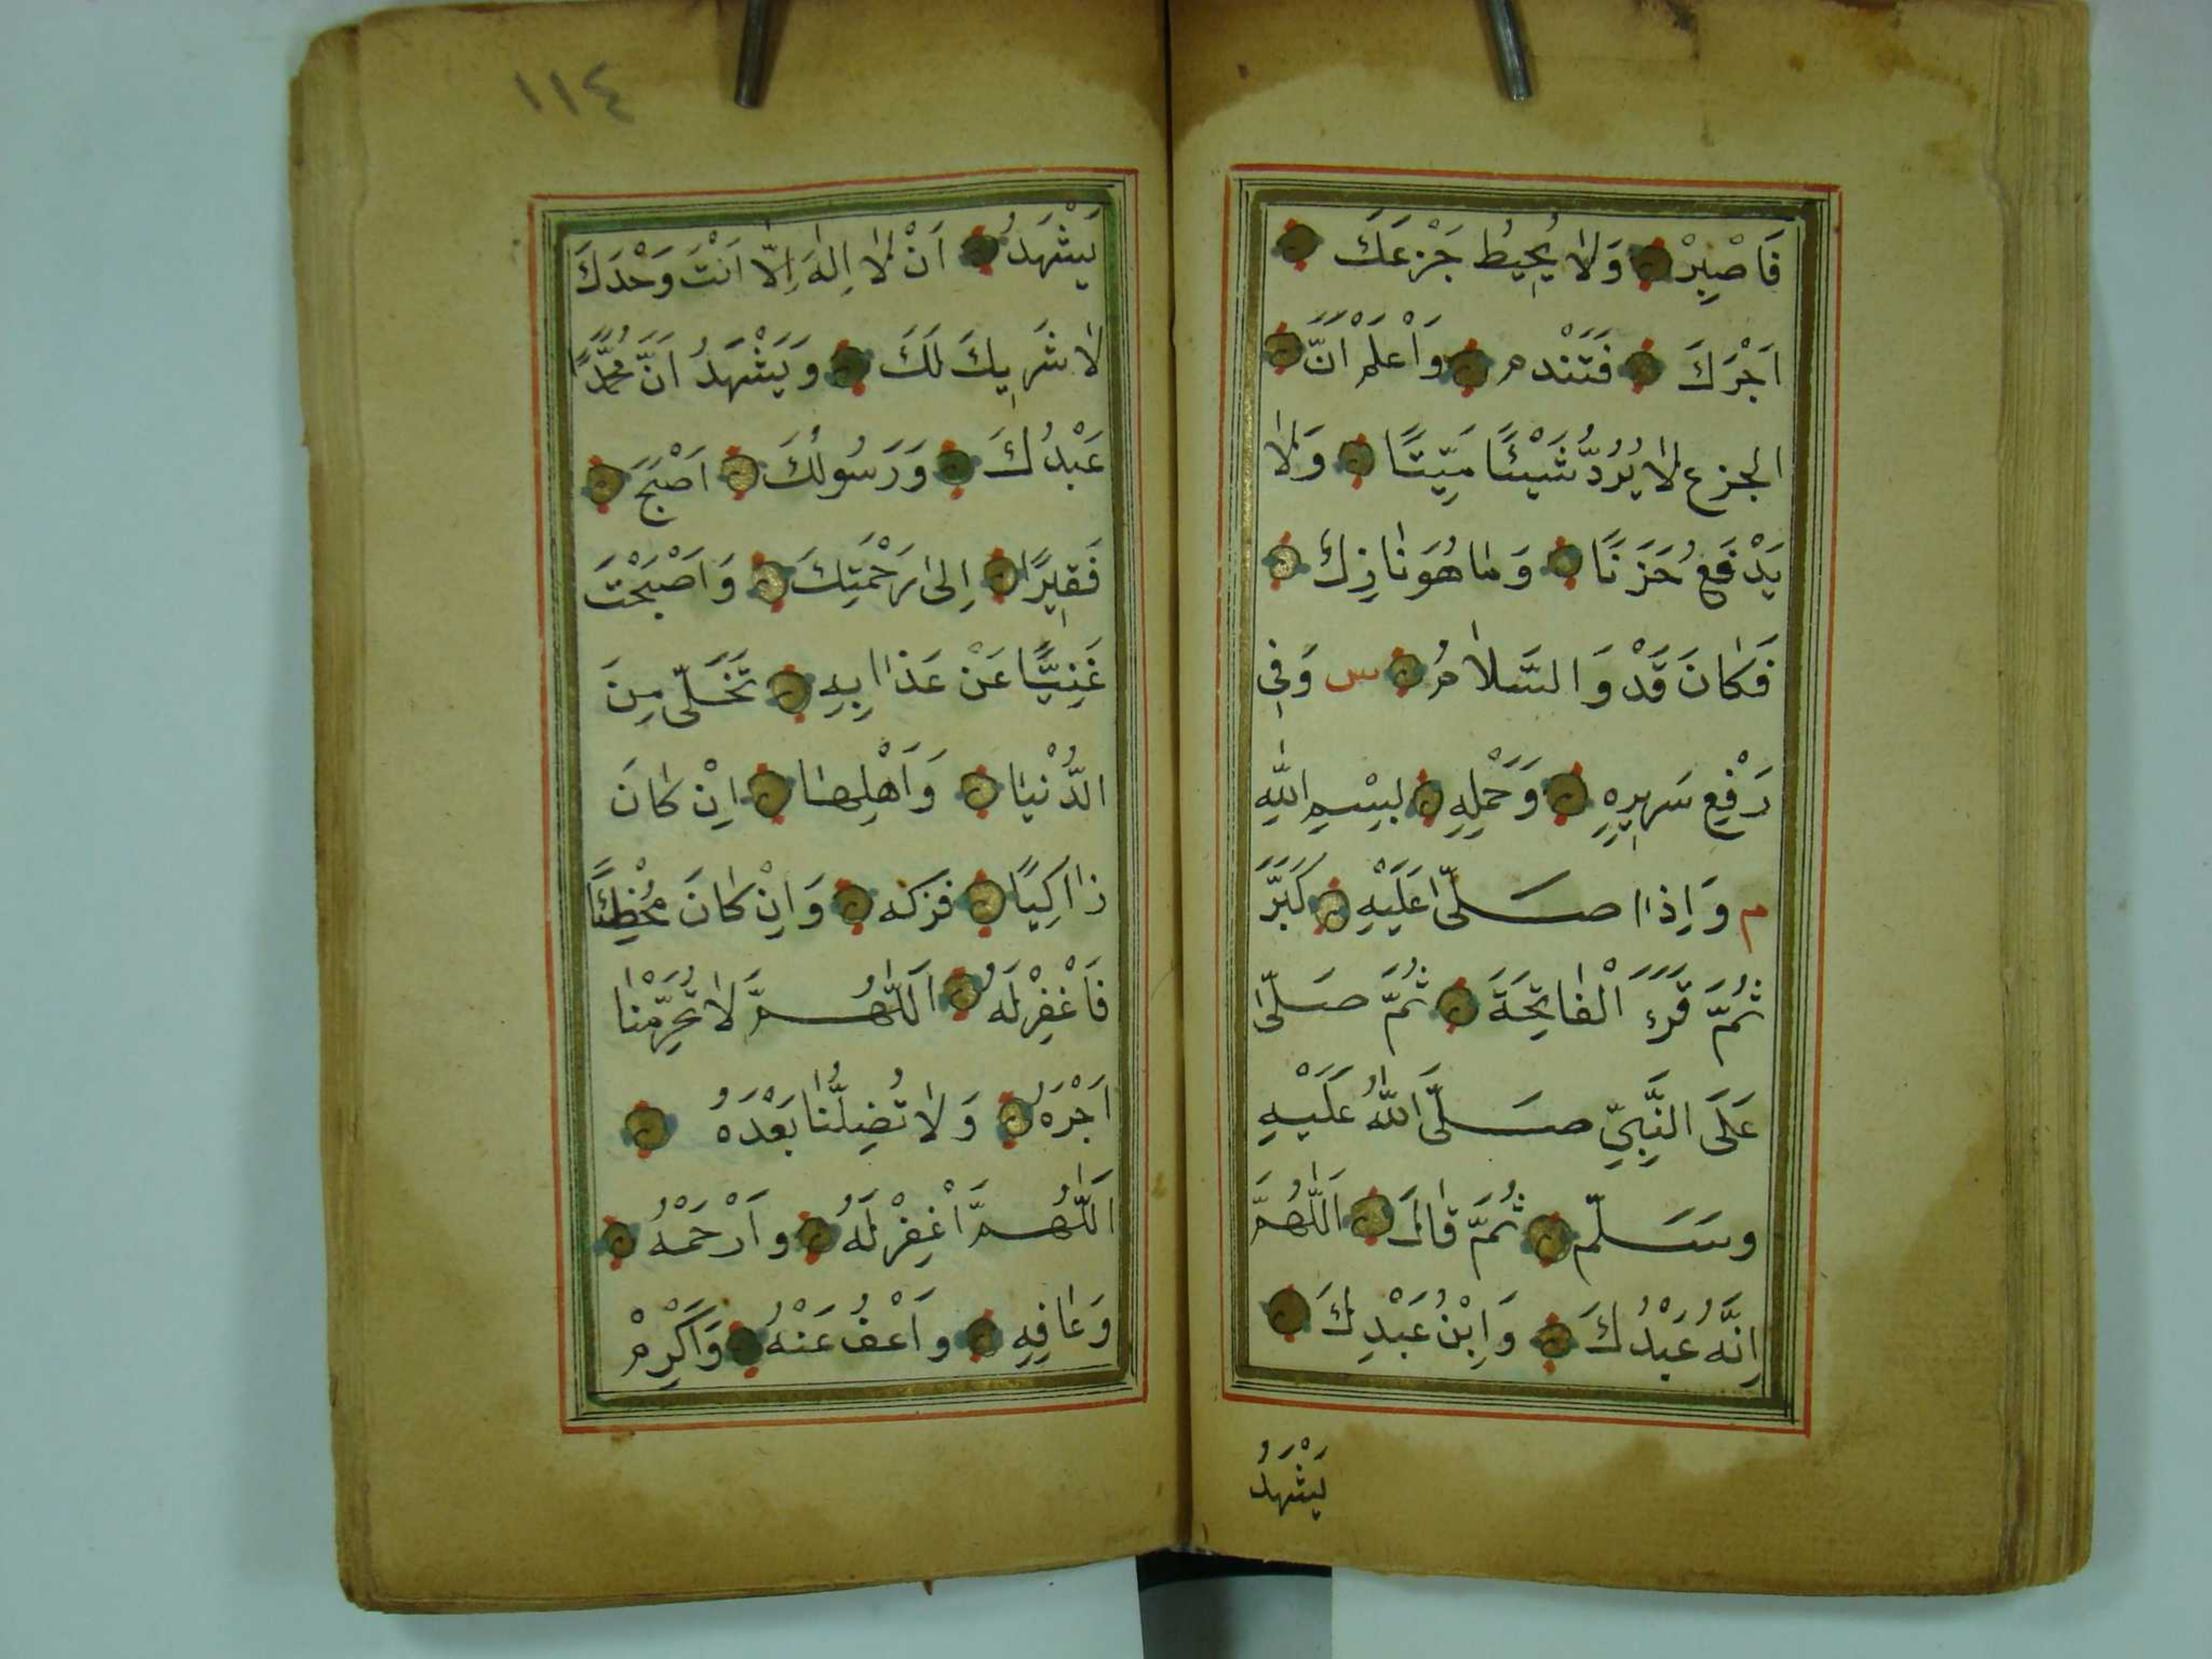 فَاصْبِرْ وَلَا يُحِيطُ جَزْعَكَ
اَجْرَكَ فَتَنْدم وَاْعْلَمْ اَنَّ
الجزع لَا يُرُدُّ شَيْئًا مَيِّتًا وَلَا
يَدْفَعُ حَزَنًا وَمَا هُوَ نَازِكٌ
فَكَانَ قَدْ وَالسَّلَامُ س وَفِي
رَفْعِ سَرِيرِهِ وَحَمْلِهِ بِسْمِ اللّٰهِ
م وَاِذَا صَلَّى عَلَيْهِ كَبَّرَ
ثُمَّ قَرَءَ الْفَاتِحَةَ ثُمَّ صَلَّى
عَلَى النَّبِيِّ صَلَّى اللّٰهُ عَلَيْهِ
وسَسَلّم ثُمَّ قَالَ اَللّٰهُمَّ
اِنَّهُ عَبْدُكَ وَابْنُ عَبْدِكَ
يَشْهَدُ
١١٤
يَشْهَدُ اَنْ لَا اِلٰهَ اِلَّا اَنْتَ وَحْدَكَ
لَا شَرِيكَ لَكَ وَيَشْهَدُ اَنَّ مُحَمَّدًا
عَبْدُكَ وَرَسُولُكَ اَصْبَحَ
فَقِيرًا اِلَى رَحْمَتِكَ وَاَصْبَحْتَ
غَنِيًّا عَنْ عَذَابِهِ تَخَلَّى مِنَ
الدُّنْيَا وَاَهْلِهَا اِنْ كَانَ
زَاكِيًا فزكه وَاِنْ كَانَ مُخْطِئًا
فَاغْفِرْ لَهُ اَللّٰهُمَّ لَا تُحَرِّمْنَا
اَجْرَهُ وَلَا تُضِلُّنَا بَعْدَهُ
اَللّٰهُمَّ اغْفِرْ لَهُ وارْحَمْهُ
وَعَافِهِ واَعْفُ عَنْهُ وَاَكْرِمْ